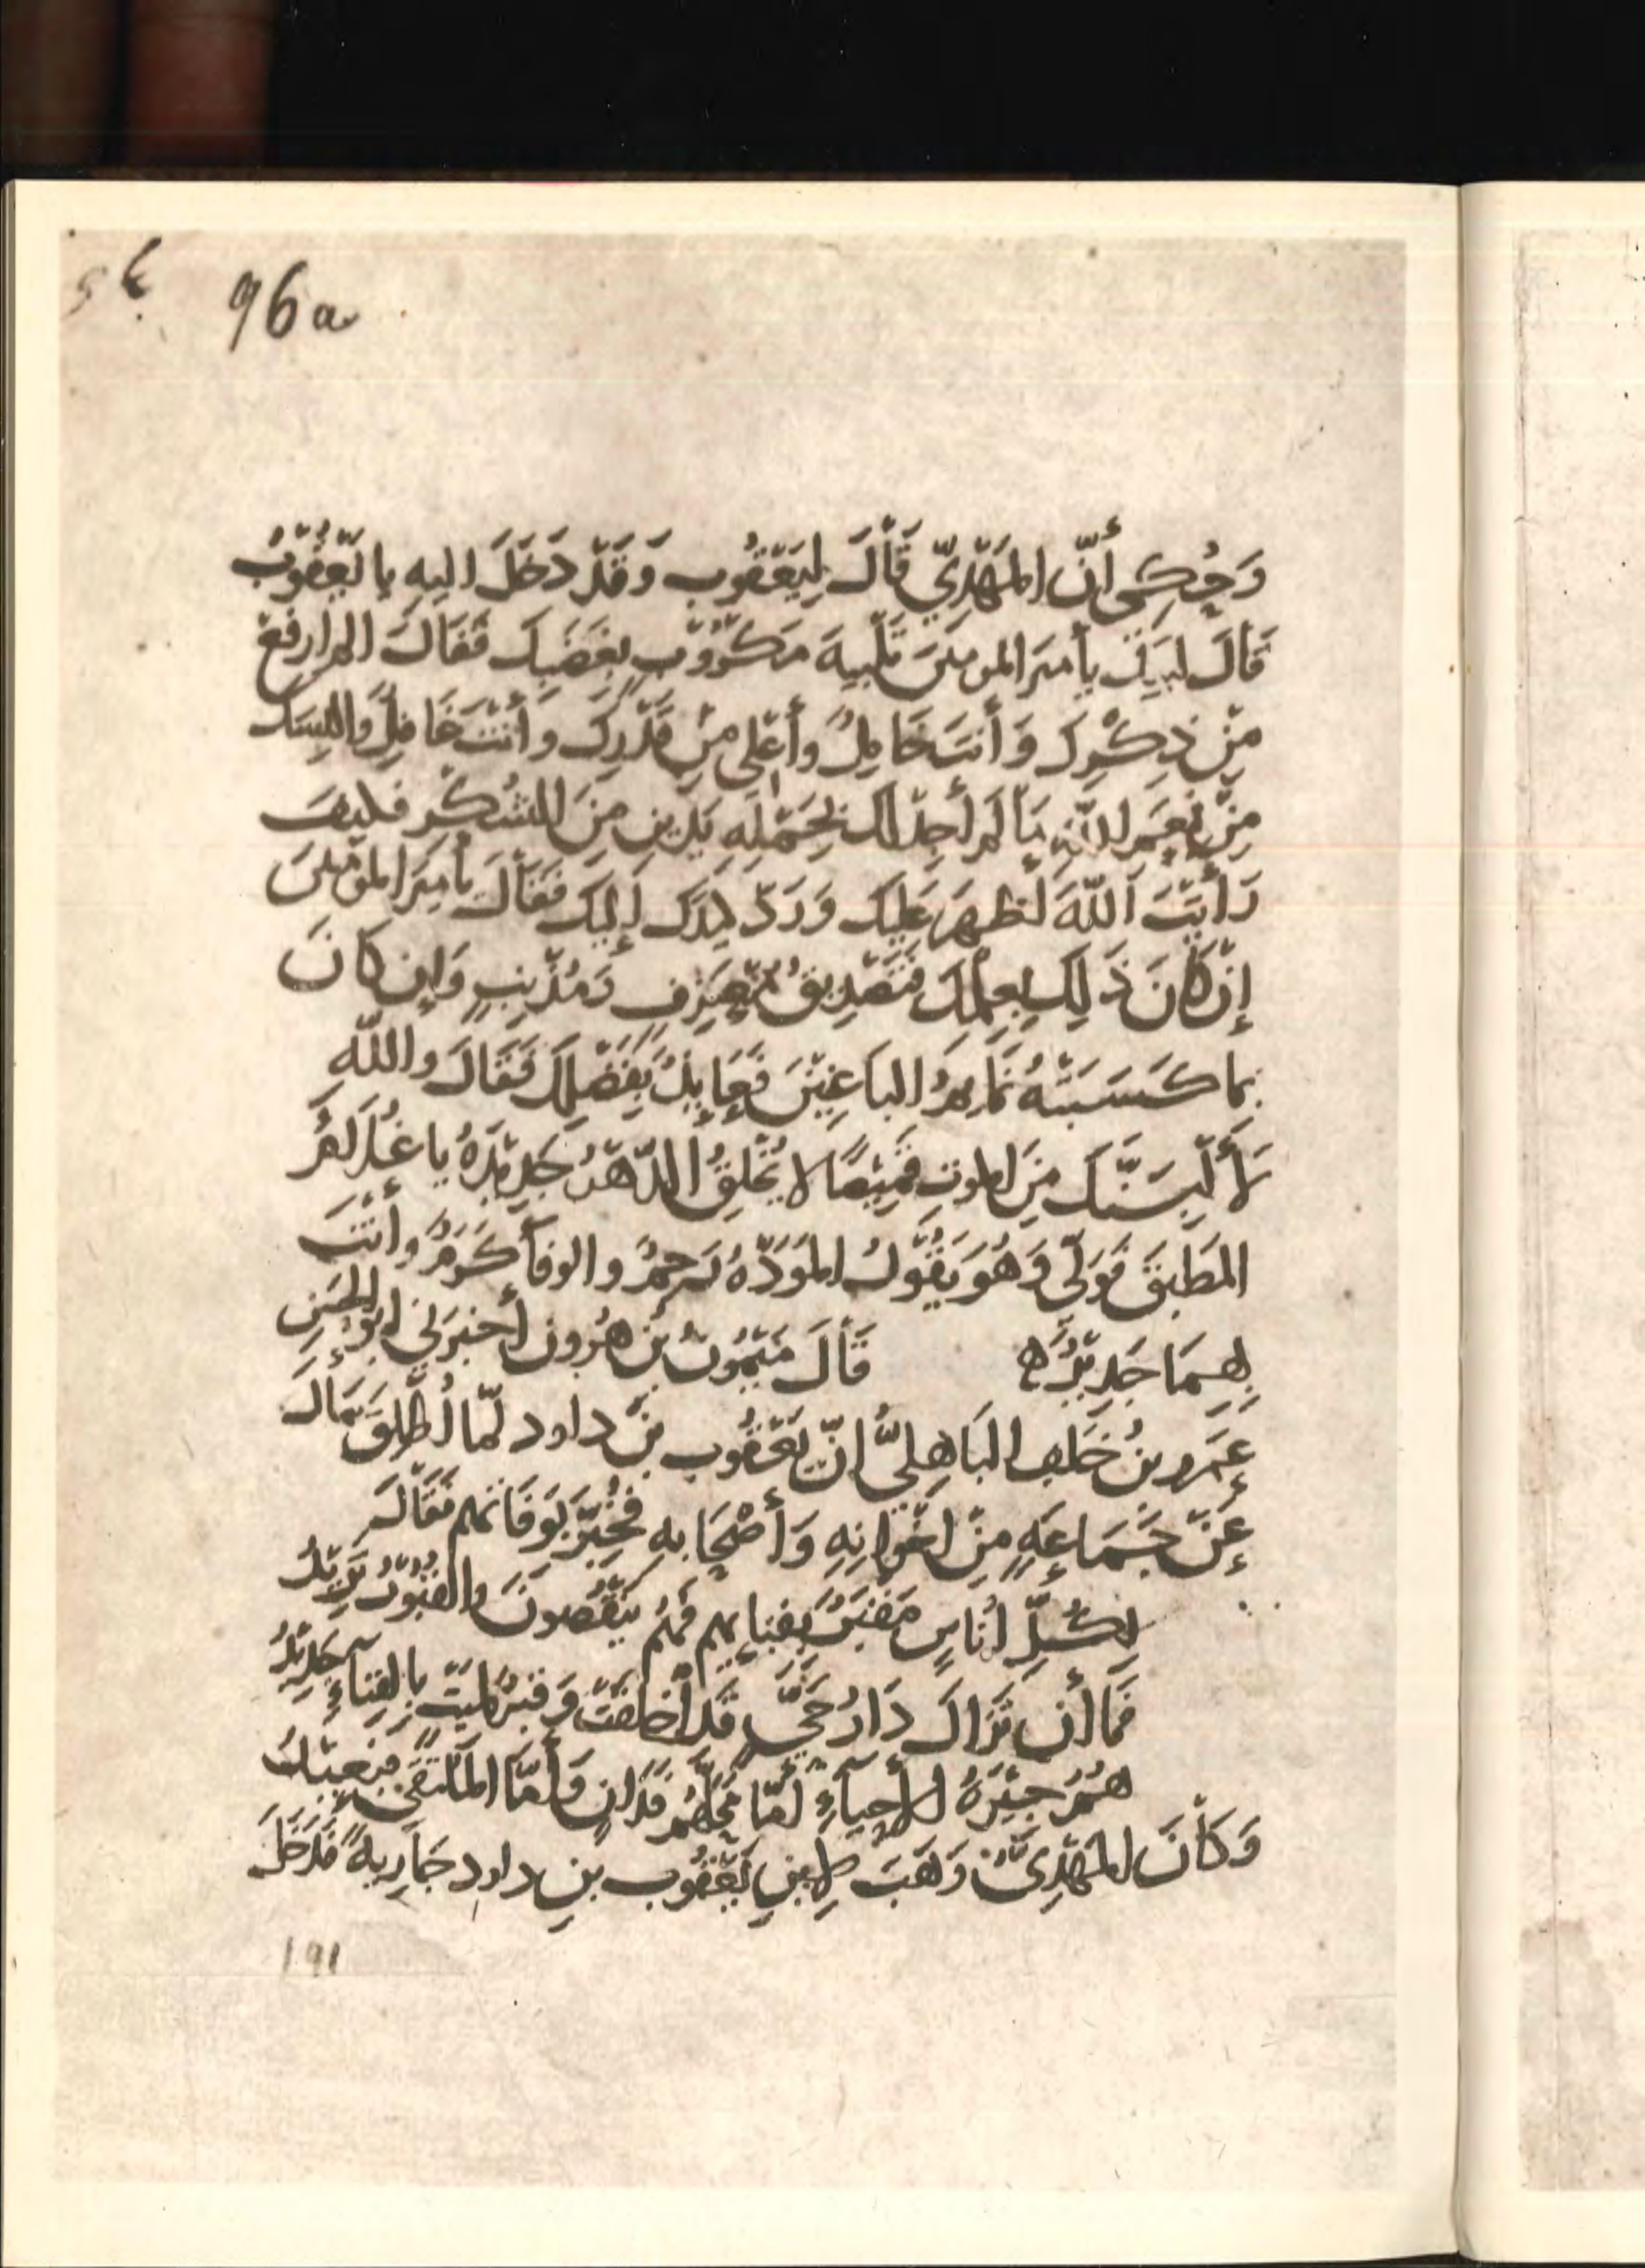 96a
وَحُكِى أَنّ المَهْدِيّ قَالَ لِيَعْقُوب وَقَدْ دَخَلَ اليه يا يَعْقُوبُ
قَالَ لبيك يا مير المومنين تَلْبِيةَ مَكْرُوْبٍ بِغَضَبِكَ فَقَالَ الم ارفع
مِنْ ذِكْرِكَ وَأَنتَ خَامِلٌ وأُعْلِى مِنْ قَدْرِكَ وأَنْتَ خَامِلٌ وَأُلبِسكَ
مِنْ نِعَمِ اللّهِ مَا لم أَجِدْ لك بِحَمْلِهِ يَدَينِ مِنَ الشُكْرِ فكيف
رَأَيْتَ اللّهَ أظهرَ عَلِيك وَرَدّ كيدَك إِلَيك فَقَالَ يا مِيرَ المؤمنينَ
إِنْ كَانَ ذَلِكَ بِعِلْمِكَ فتَصْدِيقُ مُعْتَرِفٍ مُذْنِبٍ وَإِن كَانَ
بما كَسَبَتْهُ نَمَايِمُ البَاغِيْنَ فَعَايِذٌ بِفَضْلِكَ فَقَالَ واللّهِ
لَأُلْبِسَنَّكَ مِنَ الموتِ قَمِيْصًا لا يُخْلِقُ الدّهْرُ جَدِيْدَهُ يا غُلَامُ
المَطبِقَ فَوَلّى وَهُوَ يَقُوْلُ المَوَدّهُ رحِمٌ والوفآ كَرَمٌ وأَنْتَ
بِهِمَا جَدِيْرٌ ه قَالَ مَيْمُونُ بْنُ هَرُونَ أَخبرَنِي ابو الحَسَنِ
عَمرو بنُ خَلَفٍ البَاهِلِيُّ انّ يَعْقُوب بن داود لمّا أُطْلِقَ سَالَ
عَنْ جَمَاعَهٍ مِنْ اخْوانِهِ وَأَصْحَابهِ فخُبِّرَ بِوَفَاتهم فَقَالَ
لِكُلِّ أُنَاسٍ مَقْبَرٌ بِفِنَايِهم فَهُم يَنْقُصونَ والقُبُوْرُ تَزِيْدُ
فَمَا أن تزَالُ دَارُ حَيٍّ قد أُخلِقَتْ وَقبرٌ لميّتٍ بِالفِنَاءِ جَدِيْدُ
هُمُ جِيْرَةُ الأحيآءِ أمّا مَحَلُّهُم فَدَانٍ وَأَمّا المُلتَقَى فبَعِيْدُ
وَكَانَ المَهْدِىُّ وَهَبَ لِابنِ يَعْقُوب بن داود جَارِيهً فَدَخَلَ
191